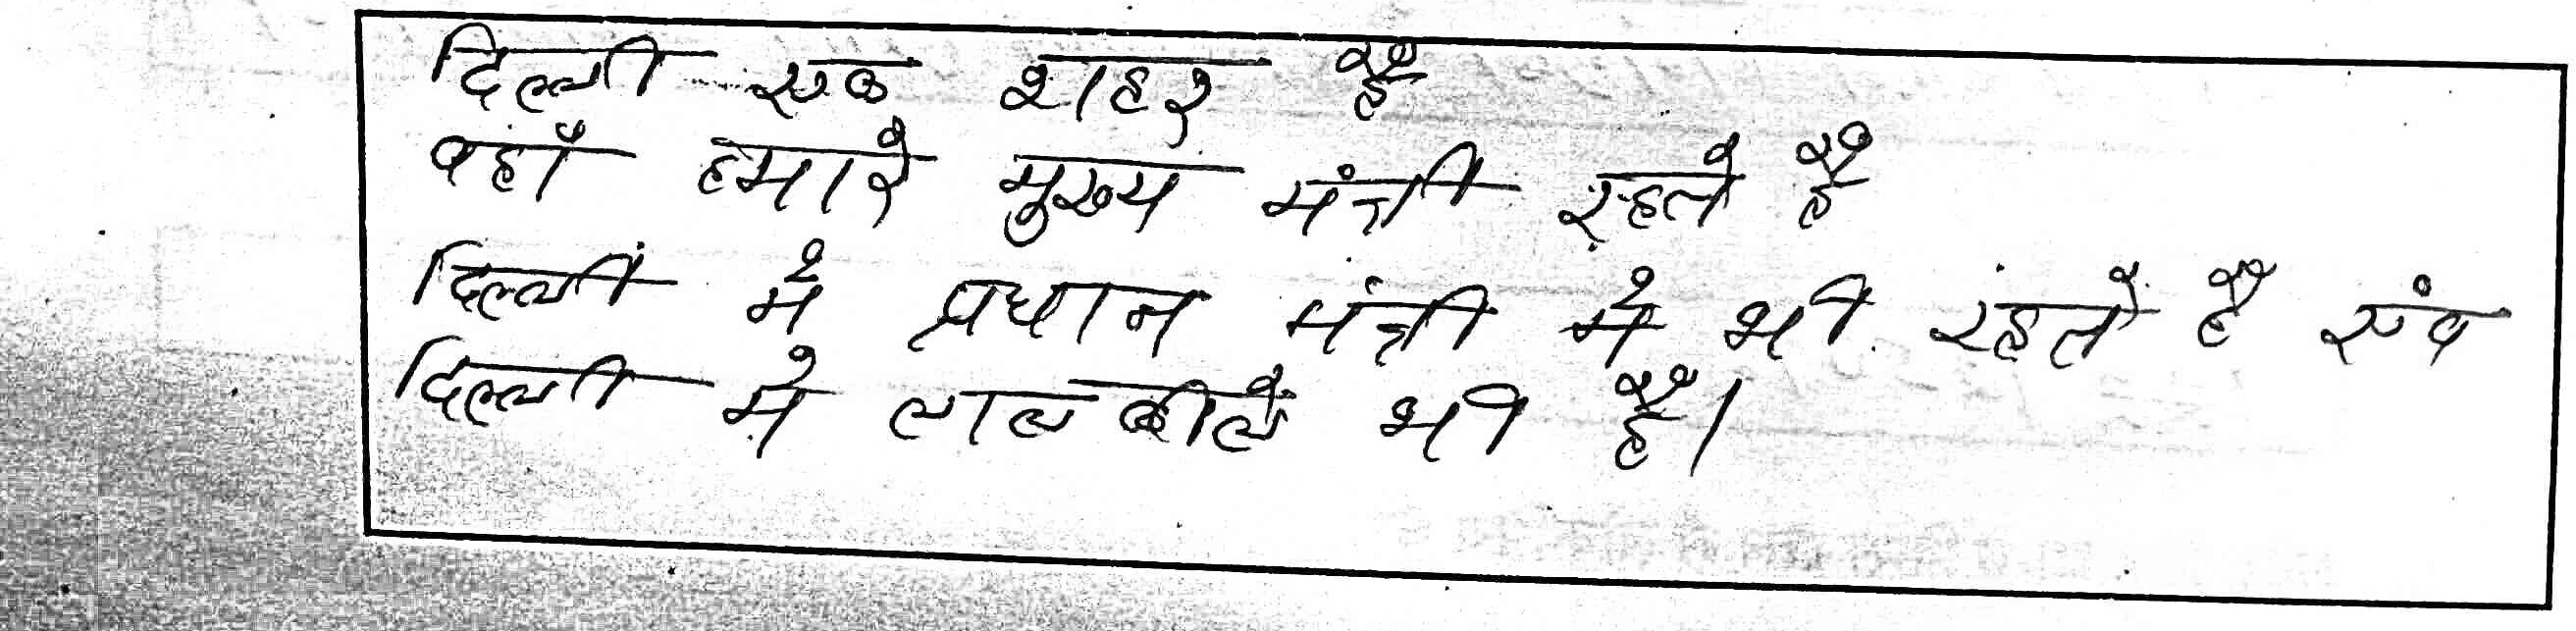 दिल्ली एक शहर है
वहाँ हमारे मुख्य मंत्री रहते है
दिल्ली में प्रधान मंत्री मे भी रहते है एंव
दिल्ली मे लाल कीले भी है।